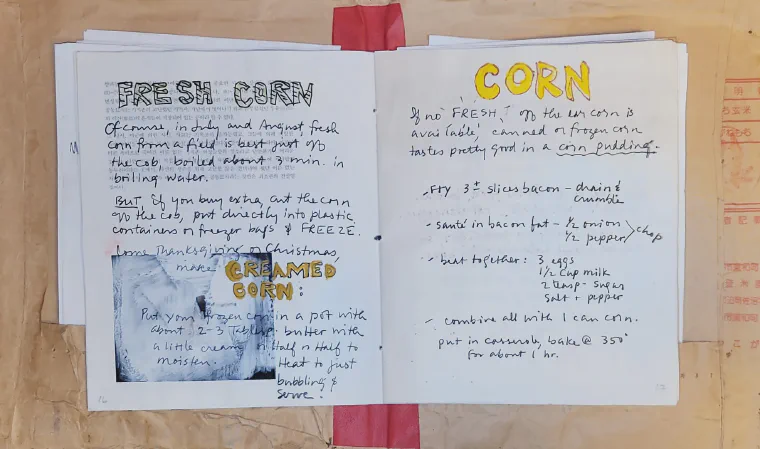 FRESH CORN
Of course, in July and August fresh
corn from a field is best just off
the cob, boiled about 3 min. in
boiling water.
BUT, if you buy extra, cut the corn
off the cob, put directly into plastic
containers or freezer bags & FREEZE.
Come Thanksgiving or Christmas,
make CREAMED
CORN:
Put your frozen corn in a pot with
about 2-3 Tablesp. butter with
a little cream or Half n Half to
moisten. Heat to just
bubbling &
serve.
CORN
If no "FRESH" off the ear corn is
available, canned or frozen corn
tastes pretty good in a corn pudding.
- Fry 3± slices bacon - drain &
crumble
- sauté in bacon fat - 1/2 onion
1/2 pepper > chop
- beat together: 3 eggs
1 1/2 cup milk
2 teasp - sugar
salt + pepper
- combine all with 1 can corn.
put in casserole, bake @ 350°
for about 1 hr.